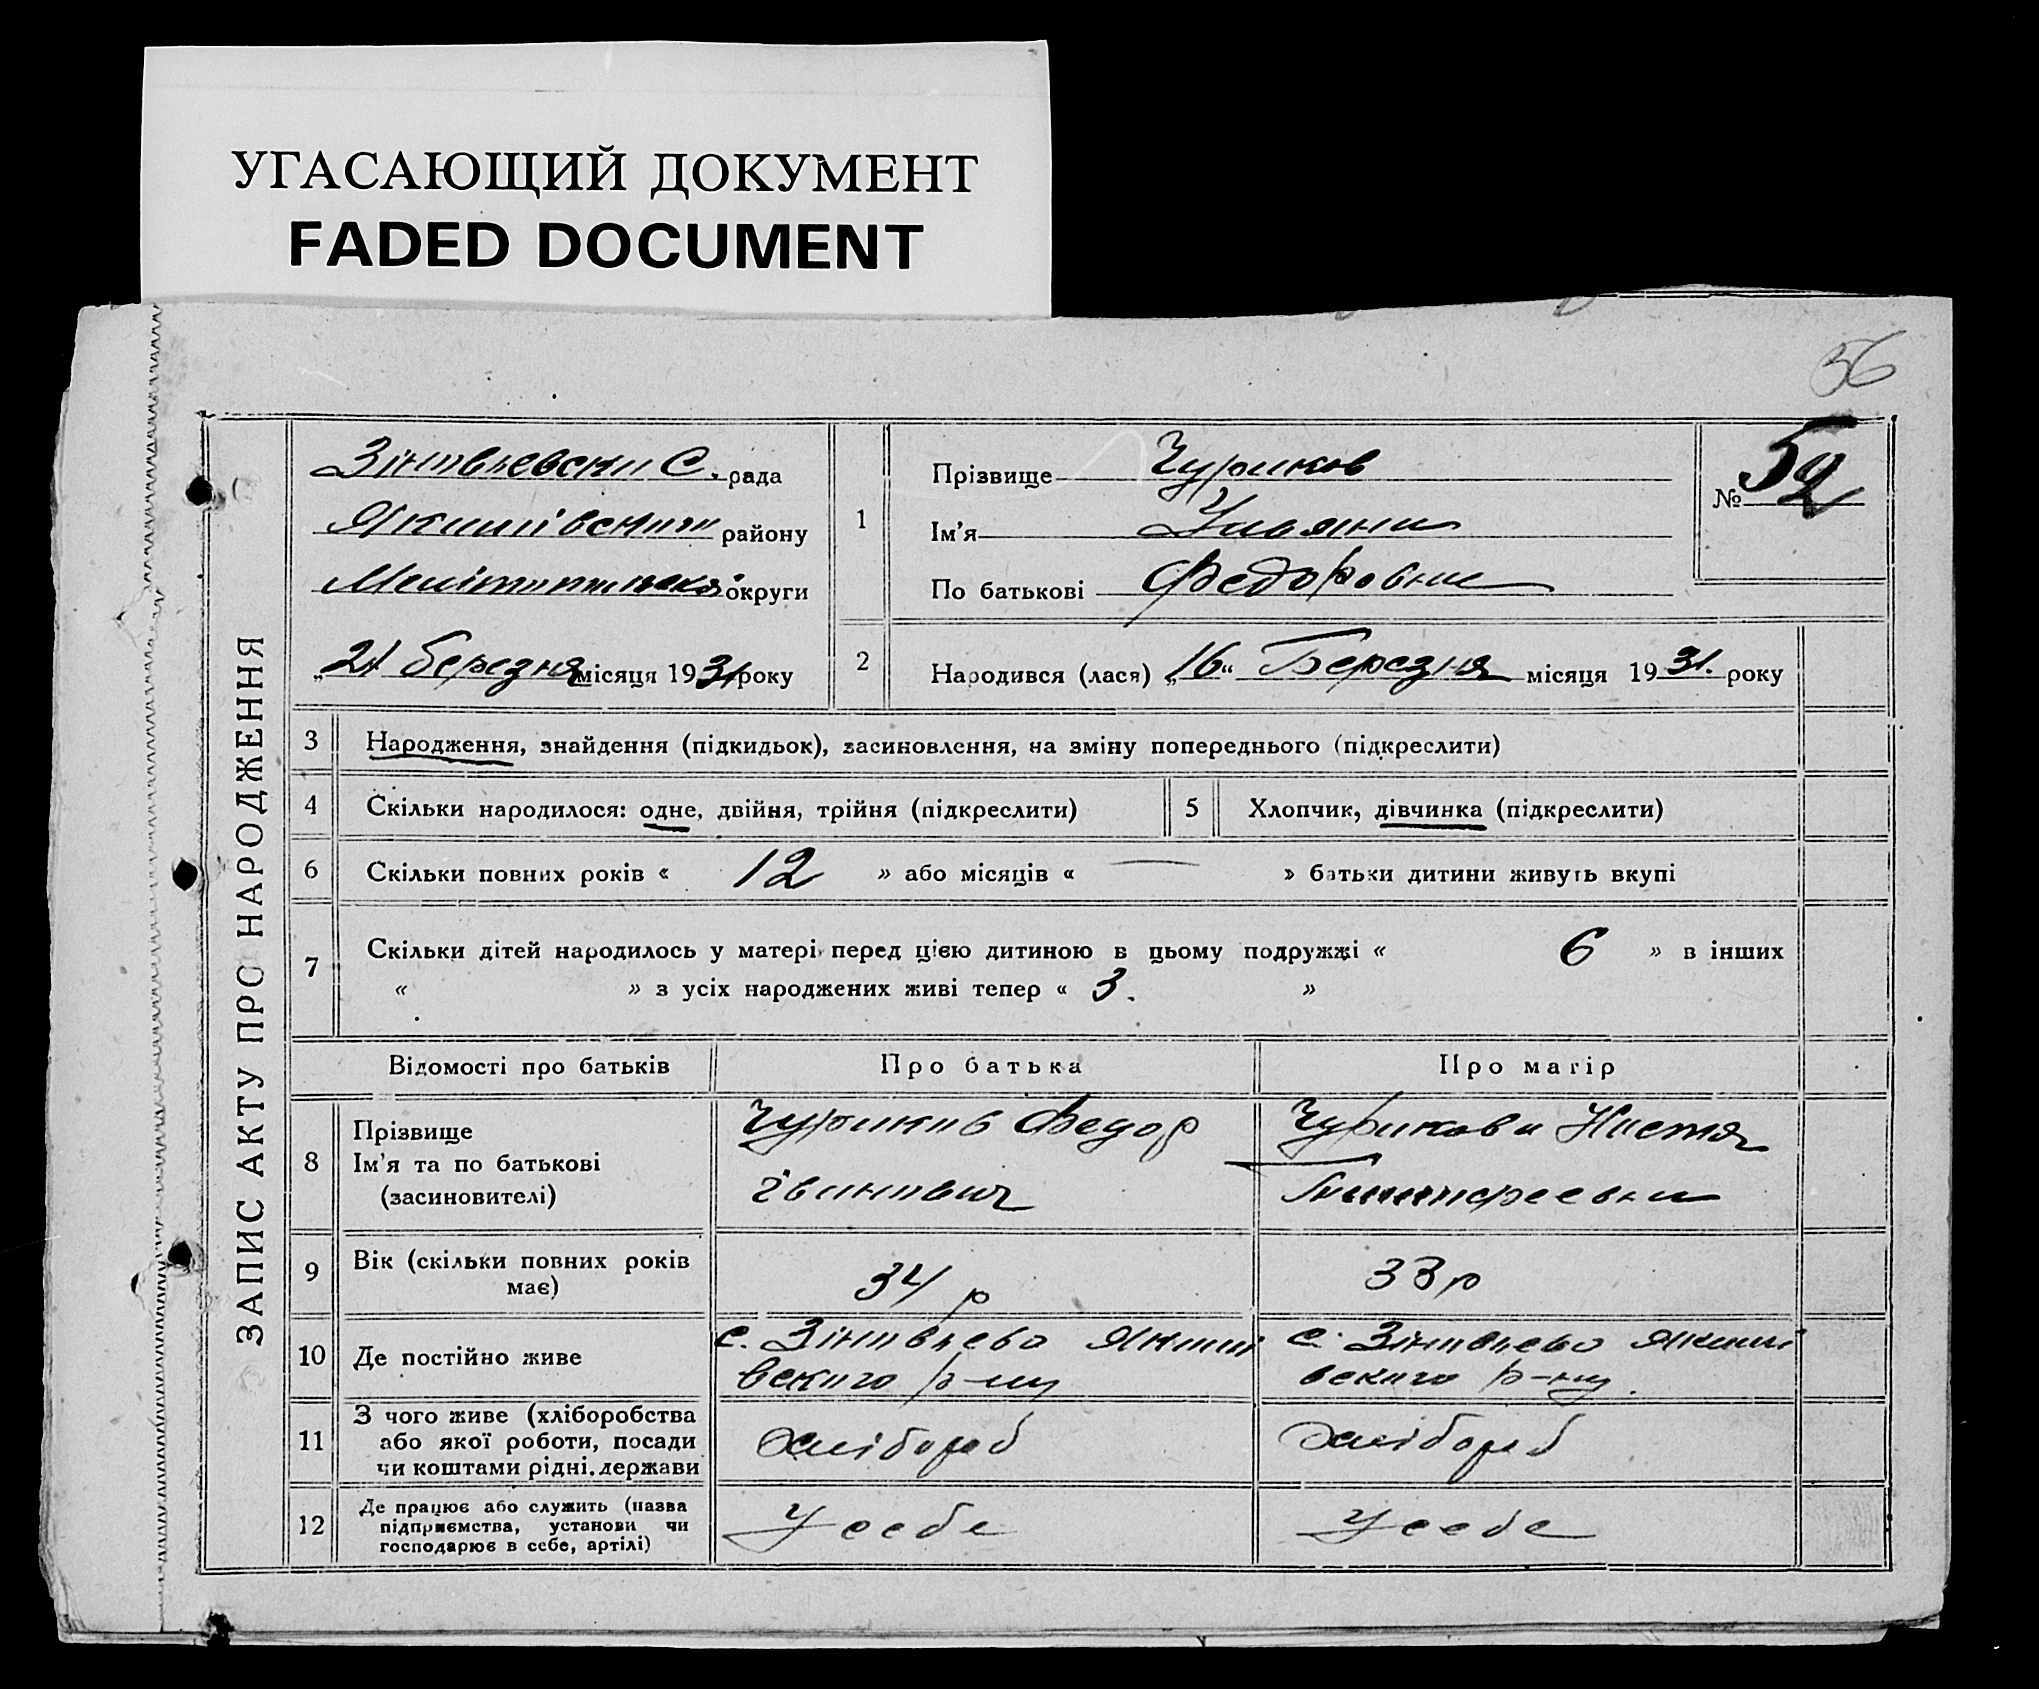 УГАСАЮЩИЙ ДОКУМЕНТ
FADED DOCUMENT
56
ЗАПИС АКТУ ПРО НАРОДЖЕННЯ
С. рада
району
округи
„21 березня місяця 1931 року
1
Прізвище Чуриков
Ім'я Ульяна
По батькові Федоровна
№ 52
2
Народився (лася) „16“ Березня місяця 1931. року
3 Народження, знайдення (підкидьок), засиновлення, на зміну попереднього (підкреслити)
4 Скільки народилося: одне, двійня, трійня (підкреслити)
5 Хлопчик, дівчинка (підкреслити)
6 Скільки повних років « 12 » або місяців « — » батьки дитини живуть вкупі
7 Скільки дітей народилось у матері перед цією дитиною в цьому подружжі « 6 » в інших
« » з усіх народжених живі тепер « 3. »
Відомості про батьків Про батька Про матір
8 Прізвище
Ім'я та по батькові
(засиновителі)
Чуриков Федор
Іванович
Чурикова Настя
9 Вік (скільки повних років
має)
34 р
33 р
10 Де постійно живе
с. Зіновьево Якимі
вского р-ну
с. Зіновьево Якимі
вского р-ну
11 З чого живе (хліборобства
або якої роботи, посади
чи коштами рідні. держави
хлібороб
хлібороб
12 Де працює або служить (назва
підприємства, установи чи
господарює в себе, артілі)
У себе
У себе